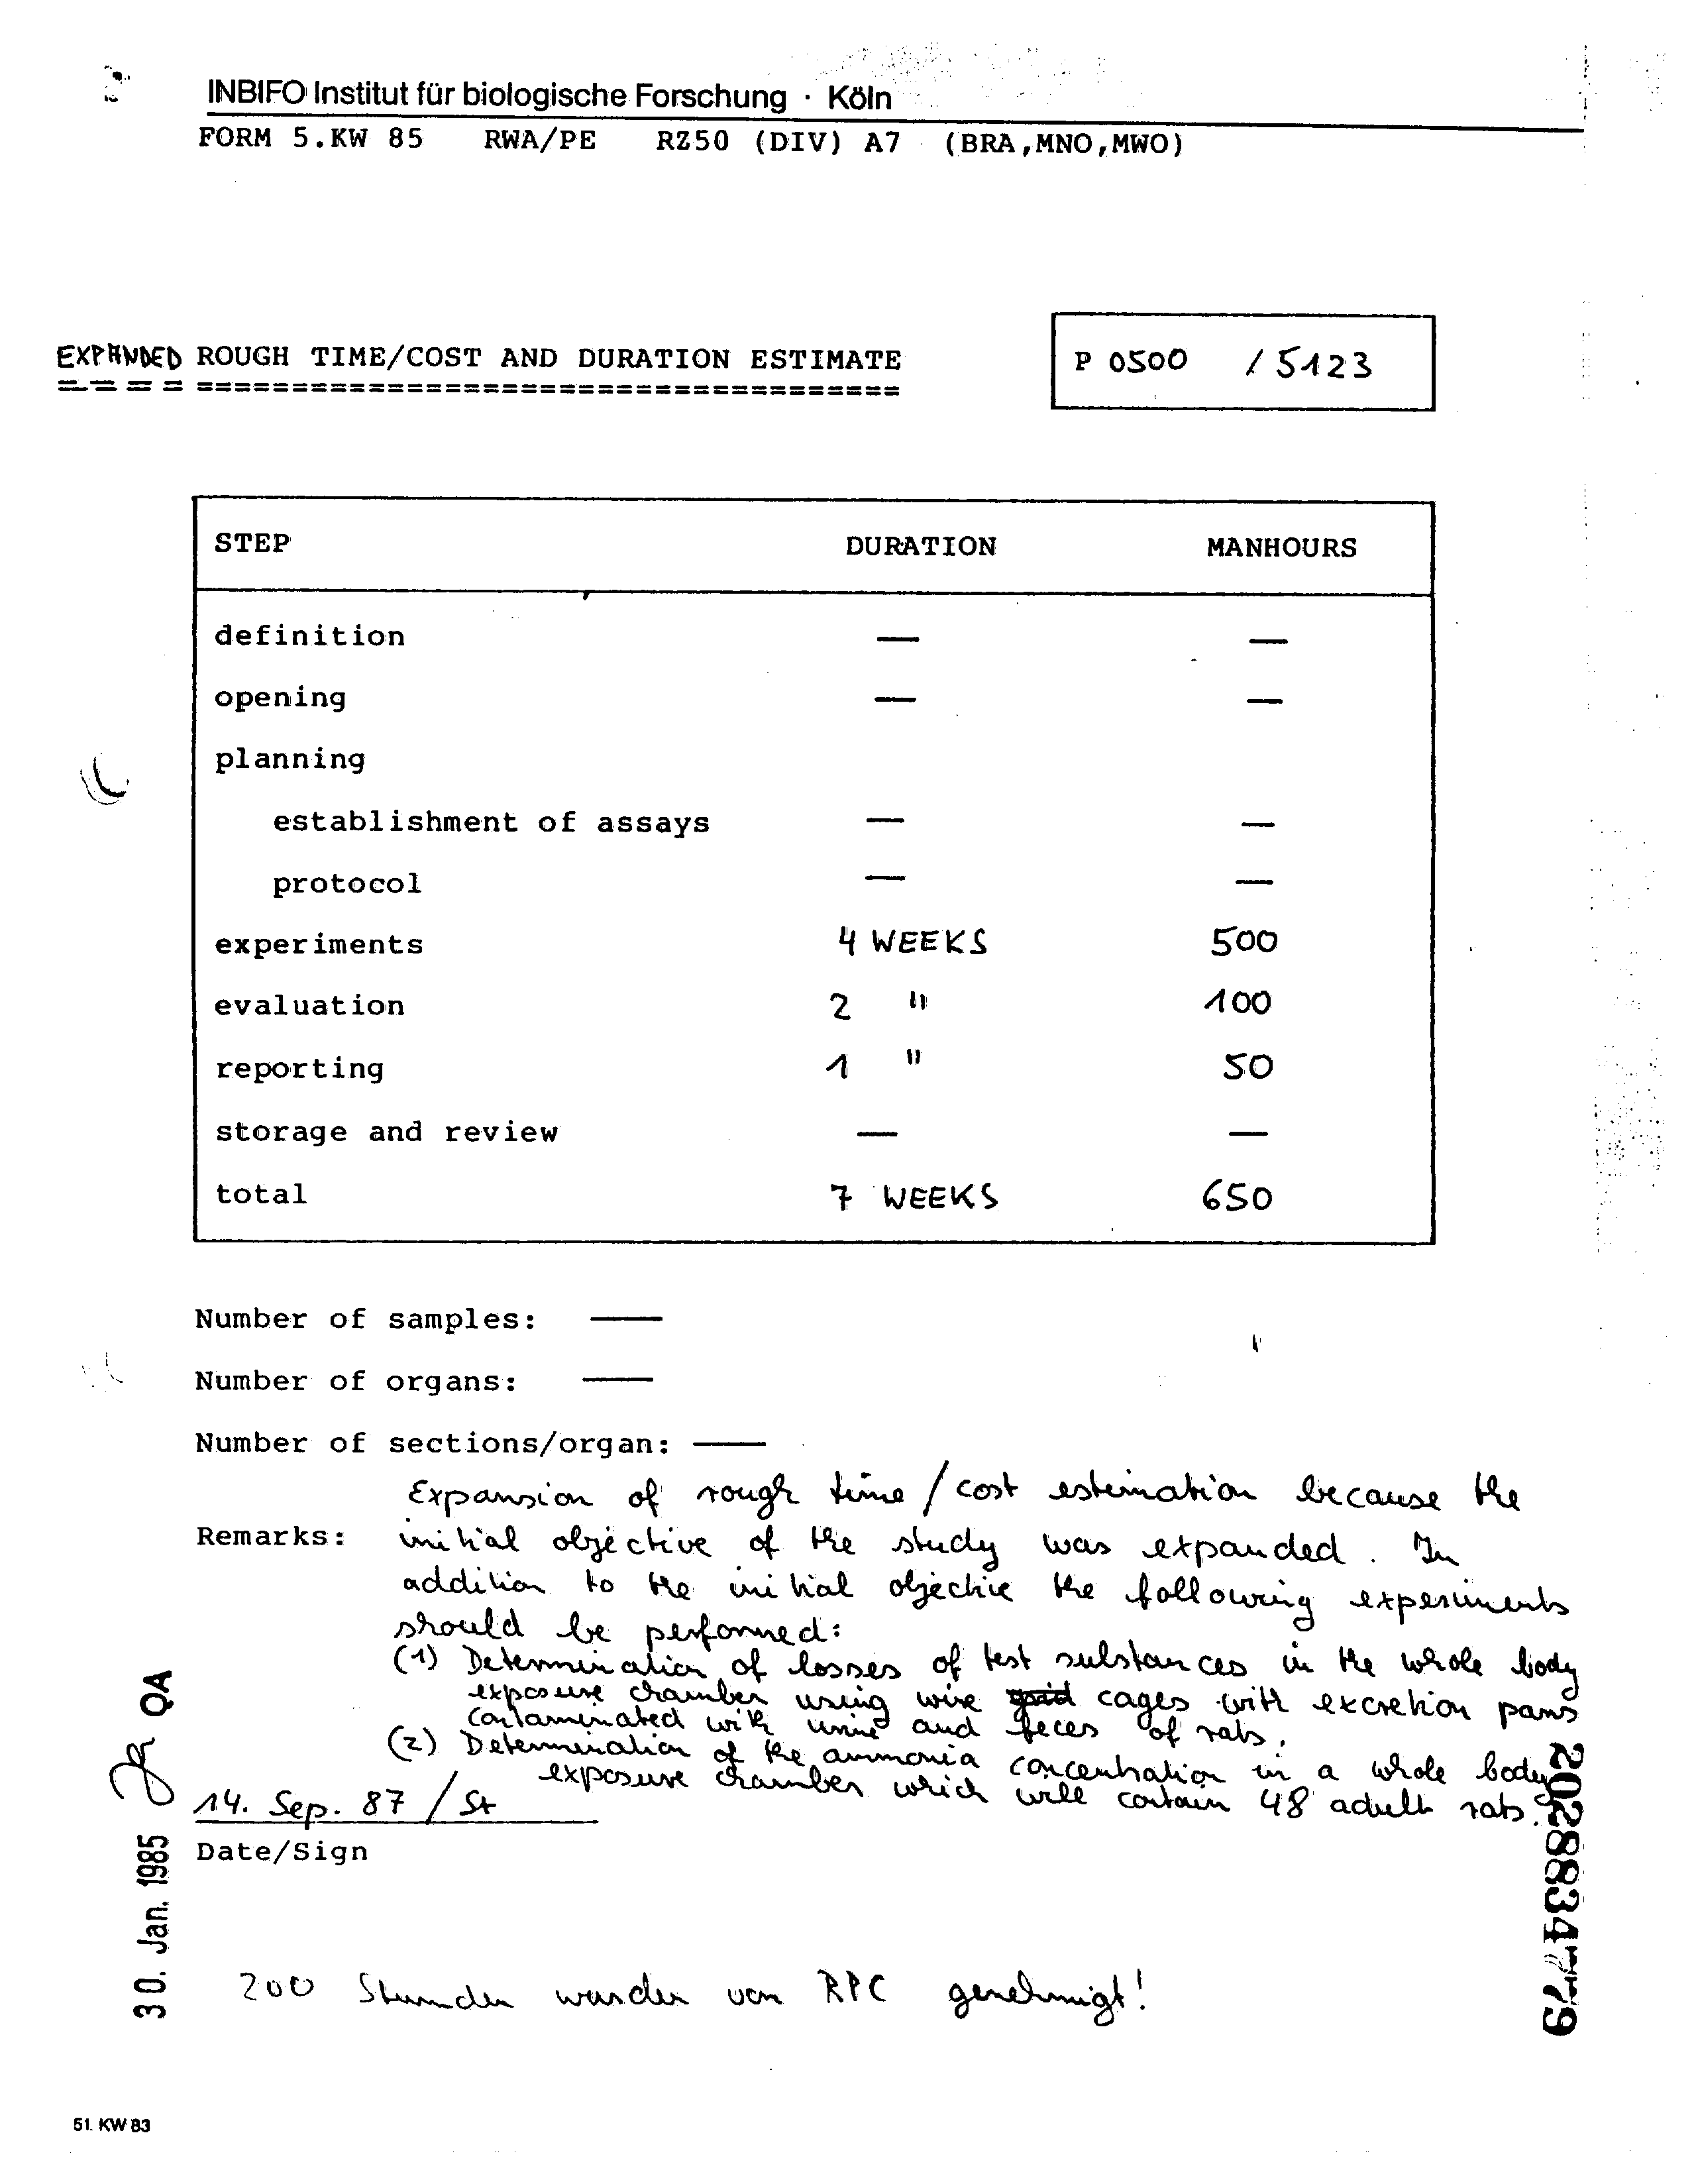 INBIFO Institut für biologische Forschung · Köln
FORM 5.KW 85 RWA/PE RZ50 (DIV) A7 (BRA,MNO,MWO)
EXPANDED ROUGH TIME/COST AND DURATION ESTIMATE
P 0500 / 5123
STEP DURATION MANHOURS
definition — —
opening — —
planning
establishment of assays — —
protocol — —
experiments 4 WEEKS 500
evaluation 2 " 100
reporting 1 " 50
storage and review — —
total 7 WEEKS 650
Number of samples: —
Number of organs: —
Number of sections/organ: —
Expansion of rough time / cost estimation because the
Remarks: initial objective of the study was expanded. In
addition to the initial objective the following experiments
should be performed:
(1) Determination of losses of test substances in the whole body
exposure chamber using wire cages with excretion pans
contaminated with urine and feces of rats.
(2) Determination of the ammonia concentration in a whole body
exposure chamber which will contain 48 adult rats.
14. Sep. 87 / St
Date/Sign
30. Jan. 1985 QA
2028834779
200 Stunden wurden von RPC genehmigt!
51. KW 83